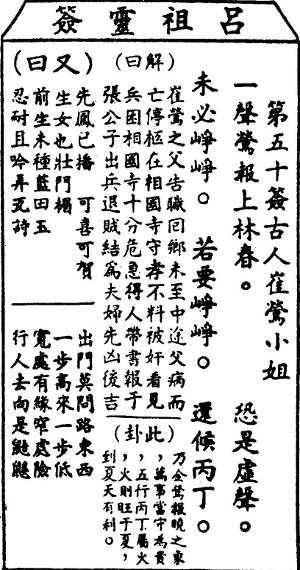 呂祖靈簽
第五十簽古人崔鶯小姐
一聲鶯報上林春。　恐是虛聲。
未必崢崢。　若要崢崢。　還候丙丁。
（解曰）
崔鶯之父告職回鄉未至中途父病而
亡停柩在相國寺守孝不料被奸看見
兵困相國寺十分危急得人帶書報于
張公子出兵退賊結為夫婦先凶後吉
（此卦）
乃金鶯報曉之象
，萬事當守為貴
，五行丙丁屬火
，火則旺于夏，
到夏天有利。
（又曰）
先鳳已播　可喜可賀
生女也壯門楣
前生未種藍田玉
忍耐且吟弄瓦詩
出門莫問路東西
一步高來一步低
寬處有緣窄處險
行人去向是